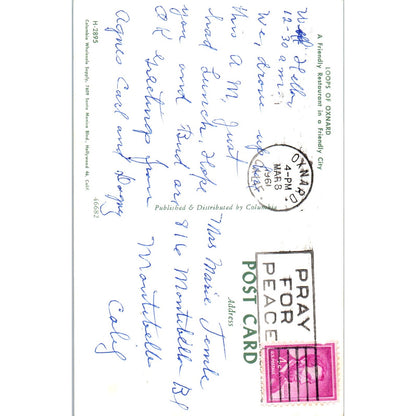 LOOPS OF OXNARD
A Friendly Restaurant in a Friendly City
12-30 a m.
We, drove up
this A M, Just
had Lunch, Hope
you and Bud are
OK greetings from
Agnes Carl and
H-2895
Columbia Wholesale Supply, 7609 Santa Monica Blvd., Hollywood 46, Calif.
46682
Published & Distributed by Columbia
OXNARD
4-PM
MAR 8
1961
CALIF.
PRAY
FOR
PEACE
POST CARD
Address
Mrs Marie
816 Montebello Bl
Montebello
Calif